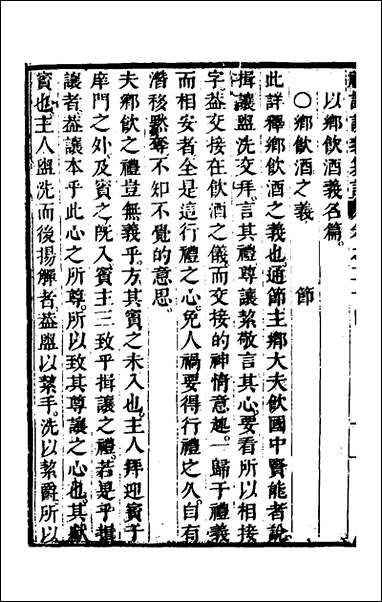 以鄉飲酒義名篇。
○鄉飲酒之義 節
此詳釋鄉飲酒之義也通節主鄉大夫飲國中賢能者說
揖讓盥洗交拜言其禮尊讓絜敬言其心要看所以相接
字葢交接在飲酒之儀而交接的神情意趣一歸于禮義
而相安者全是這行禮之心免人禍要得行禮之久自有
潛移默奪不知不覺的意思
夫鄉飲之禮豈無義乎方其賓之未入也主人拜迎賓于
庠門之外及賓之旣入賓主三致乎揖讓之禮若是乎揖
讓者葢讓本乎此心之所尊所以致其尊讓之心也其獻
賓也主人盥洗而後揚觶者葢盥以絜手洗以絜爵所以